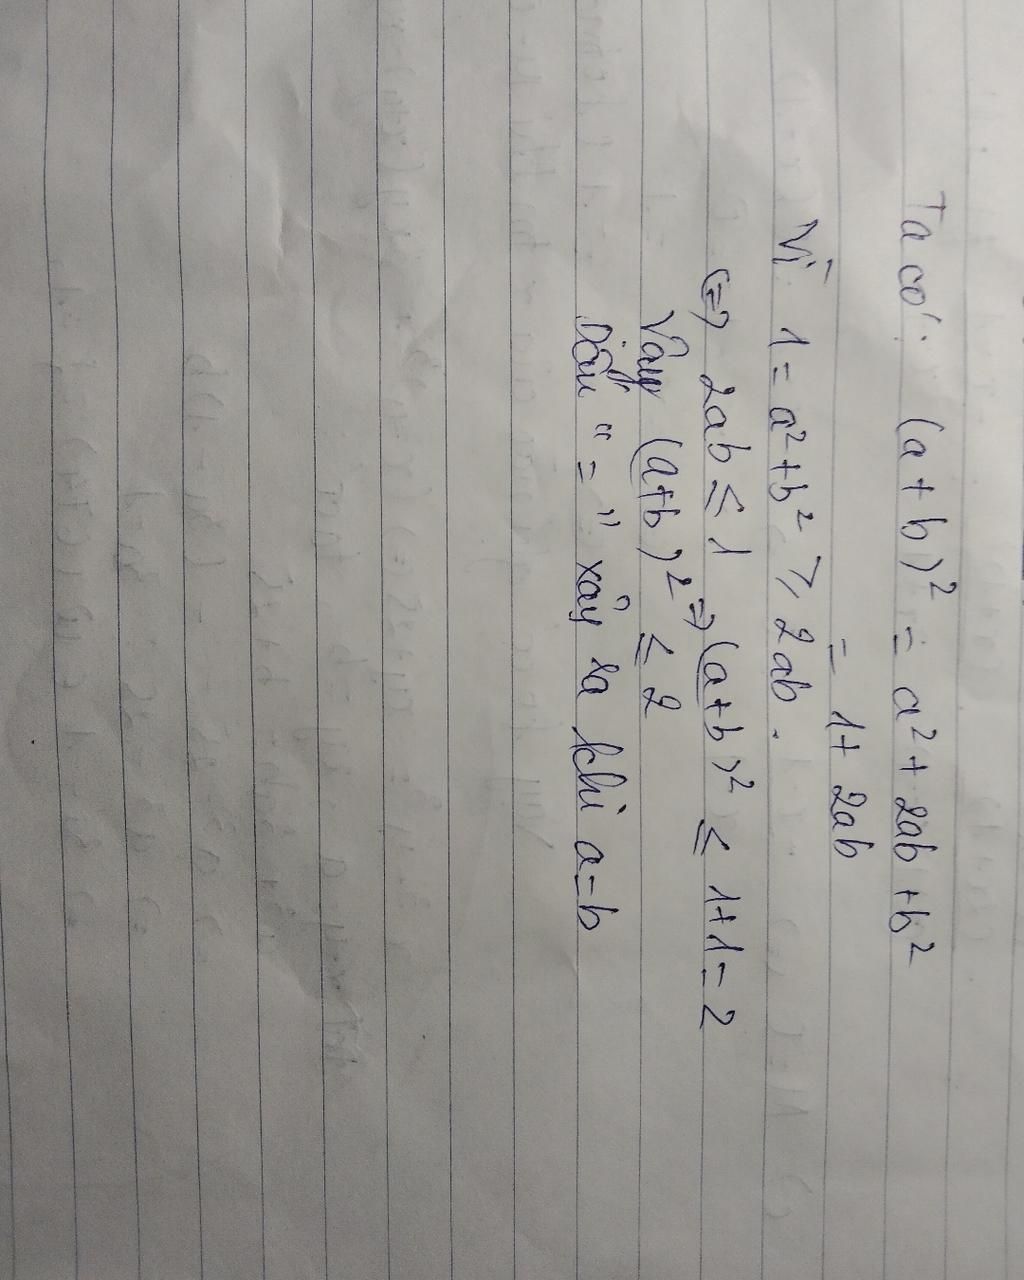 Ta có: (a + b)² = a² + 2ab + b²
= 1 + 2ab
Vì 1 = a² + b² ≥ 2ab.
(=) 2ab ≤ 1 => (a + b)² ≤ 1+1 = 2
Vậy (a+b)² ≤ 2
Dấu " = " xảy ra khi a = b